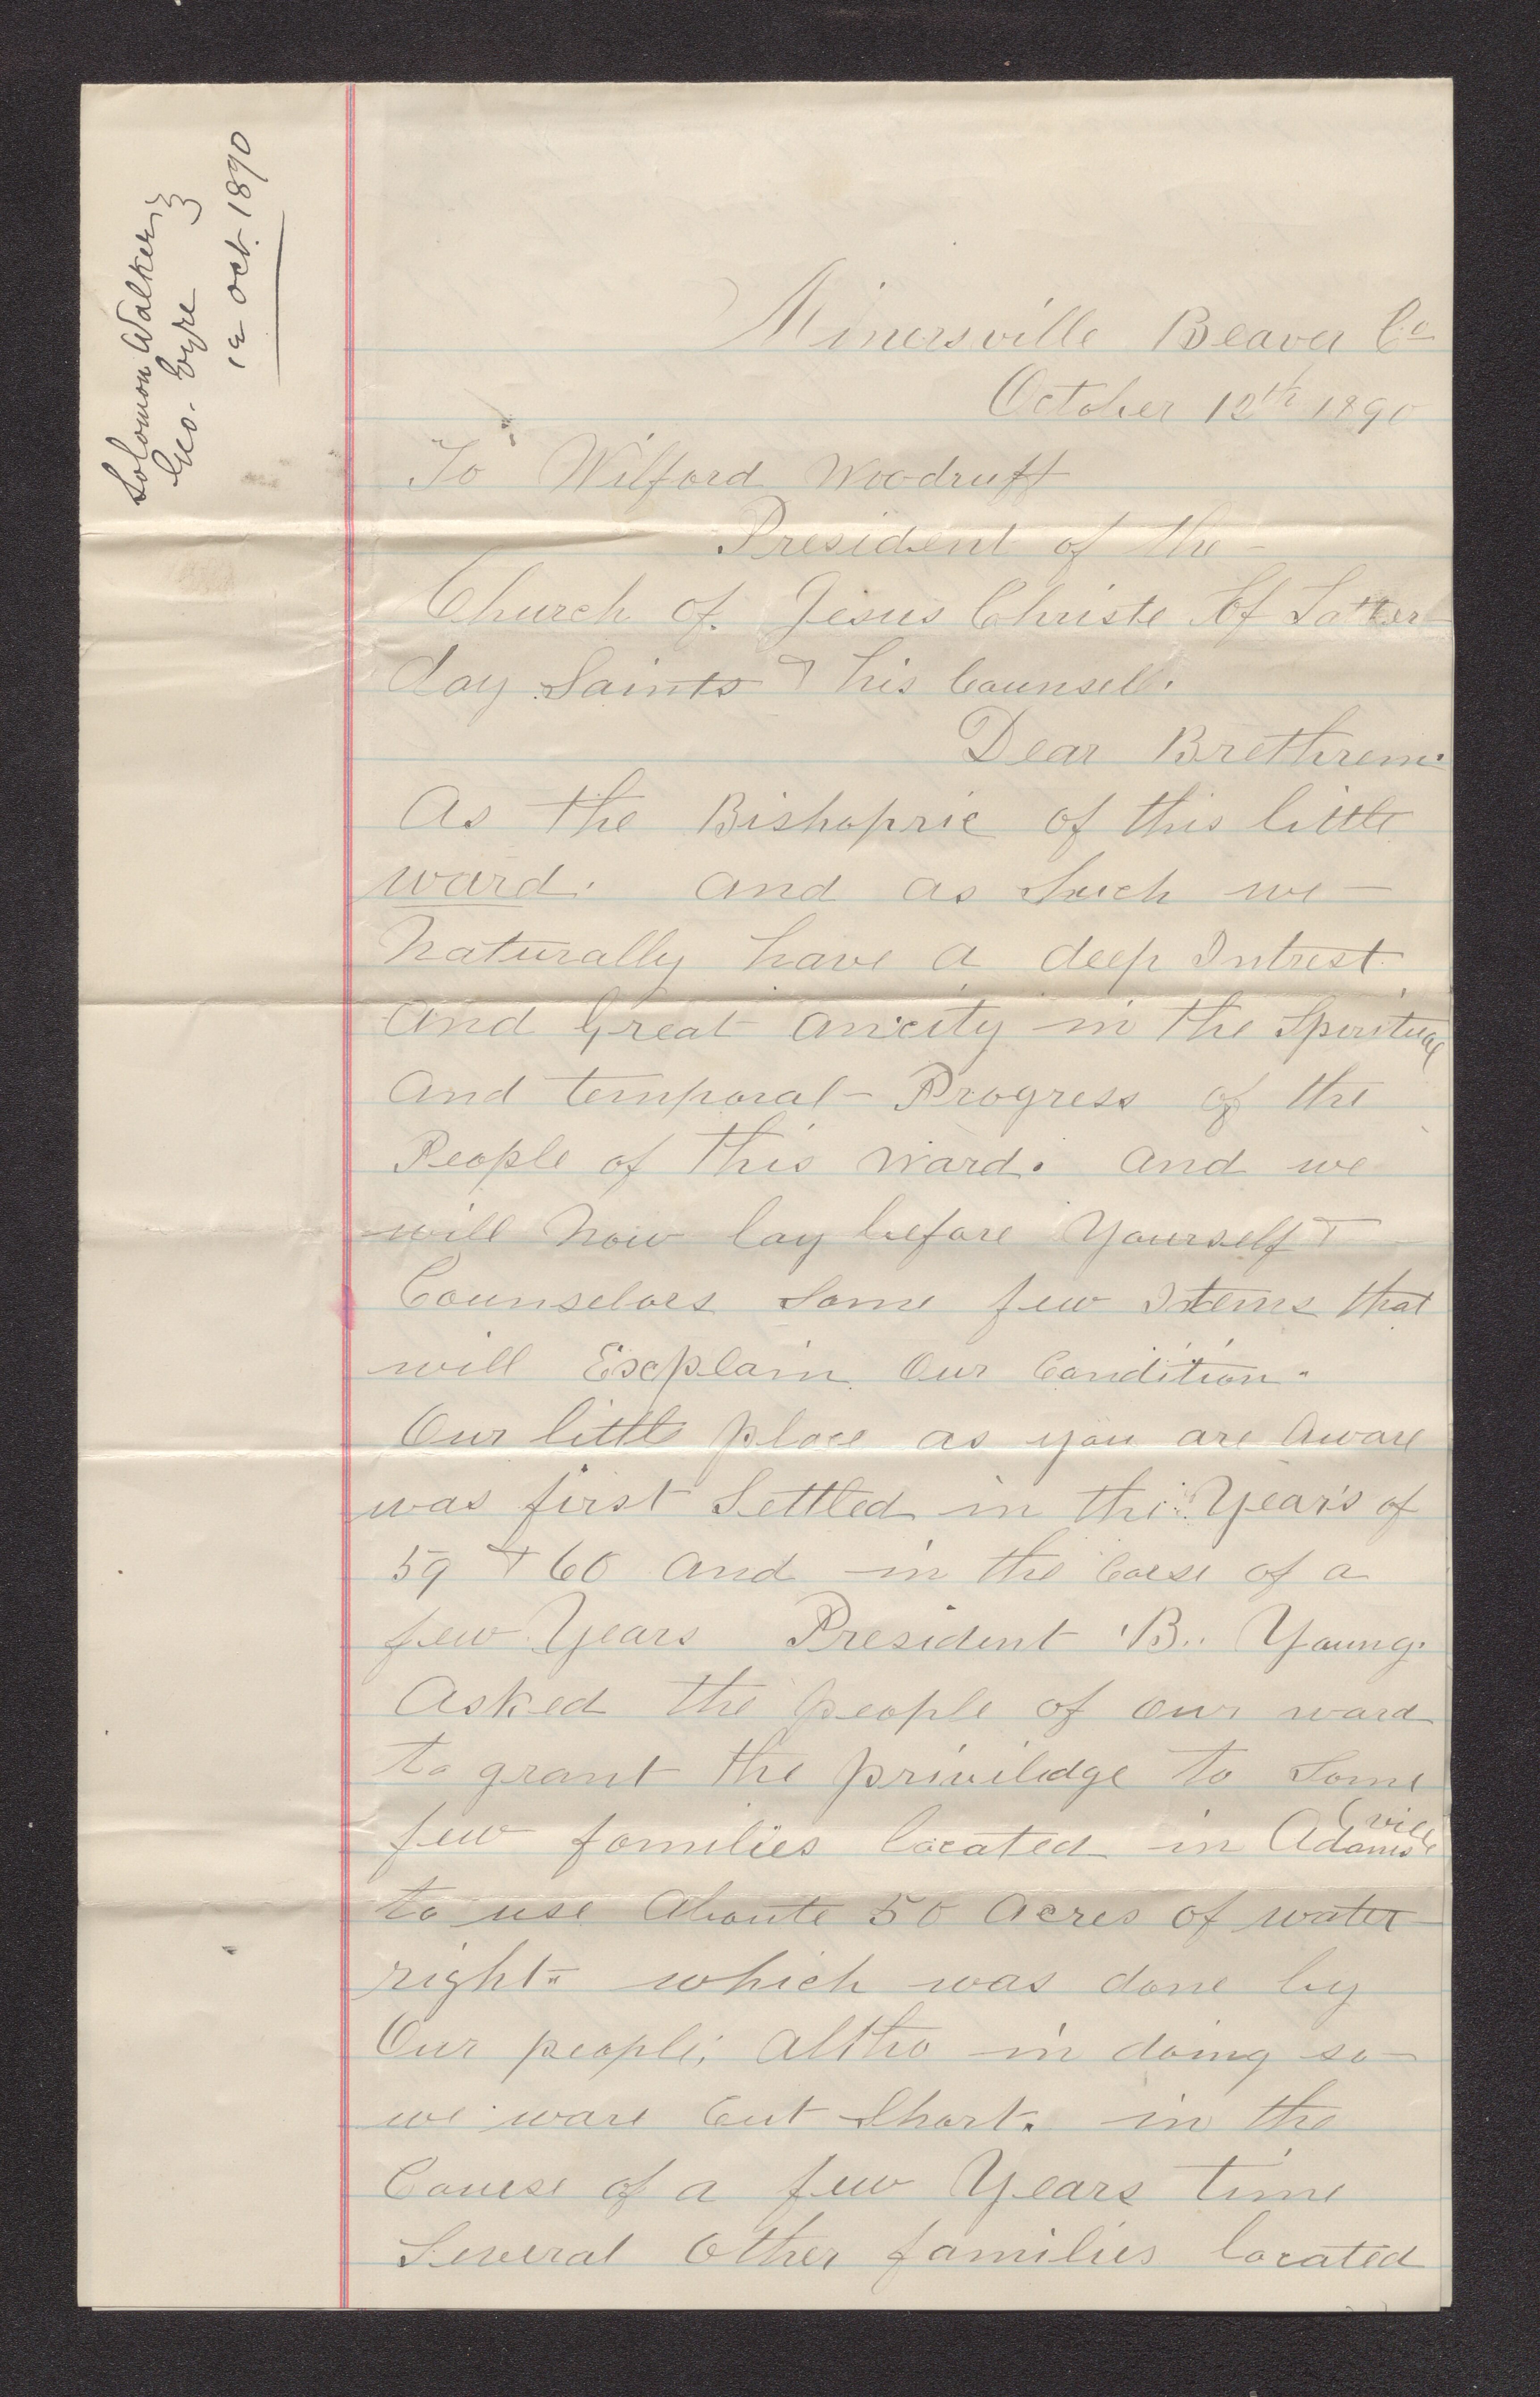 Solomon Walker; }
Geo. Eyre }
12 Oct. 1890
Minersville Beaver Co
October 12th 1890
To Wilford Woodruff
President of the -
Church of. Jesus Christe Of Latter
day Saints & his Counsell.
Dear Brethren.
As the Bishopric of this little
ward. and as Such we -
Naturally have a deep Intrest
And Great Anxcity in the Spiritual
And temporal - Progress of the
People of this Ward. And we
will Now lay before Yourself &
Counselors Some few Items that
will Exxplain Our Condition.
Our little place as you are Aware
was first Settled in the Years of
59 & 60 And in the Corse of a
few Years President B. Young.
Asked the people of our ward
to grant the priviledge to Some
few families located in Adamsville
to use Aboute 50 Acres of water
right which was done by
Our people; Altho in doing so -
we ware Cut Short. in the
Course of a few Years time
Several Other families located